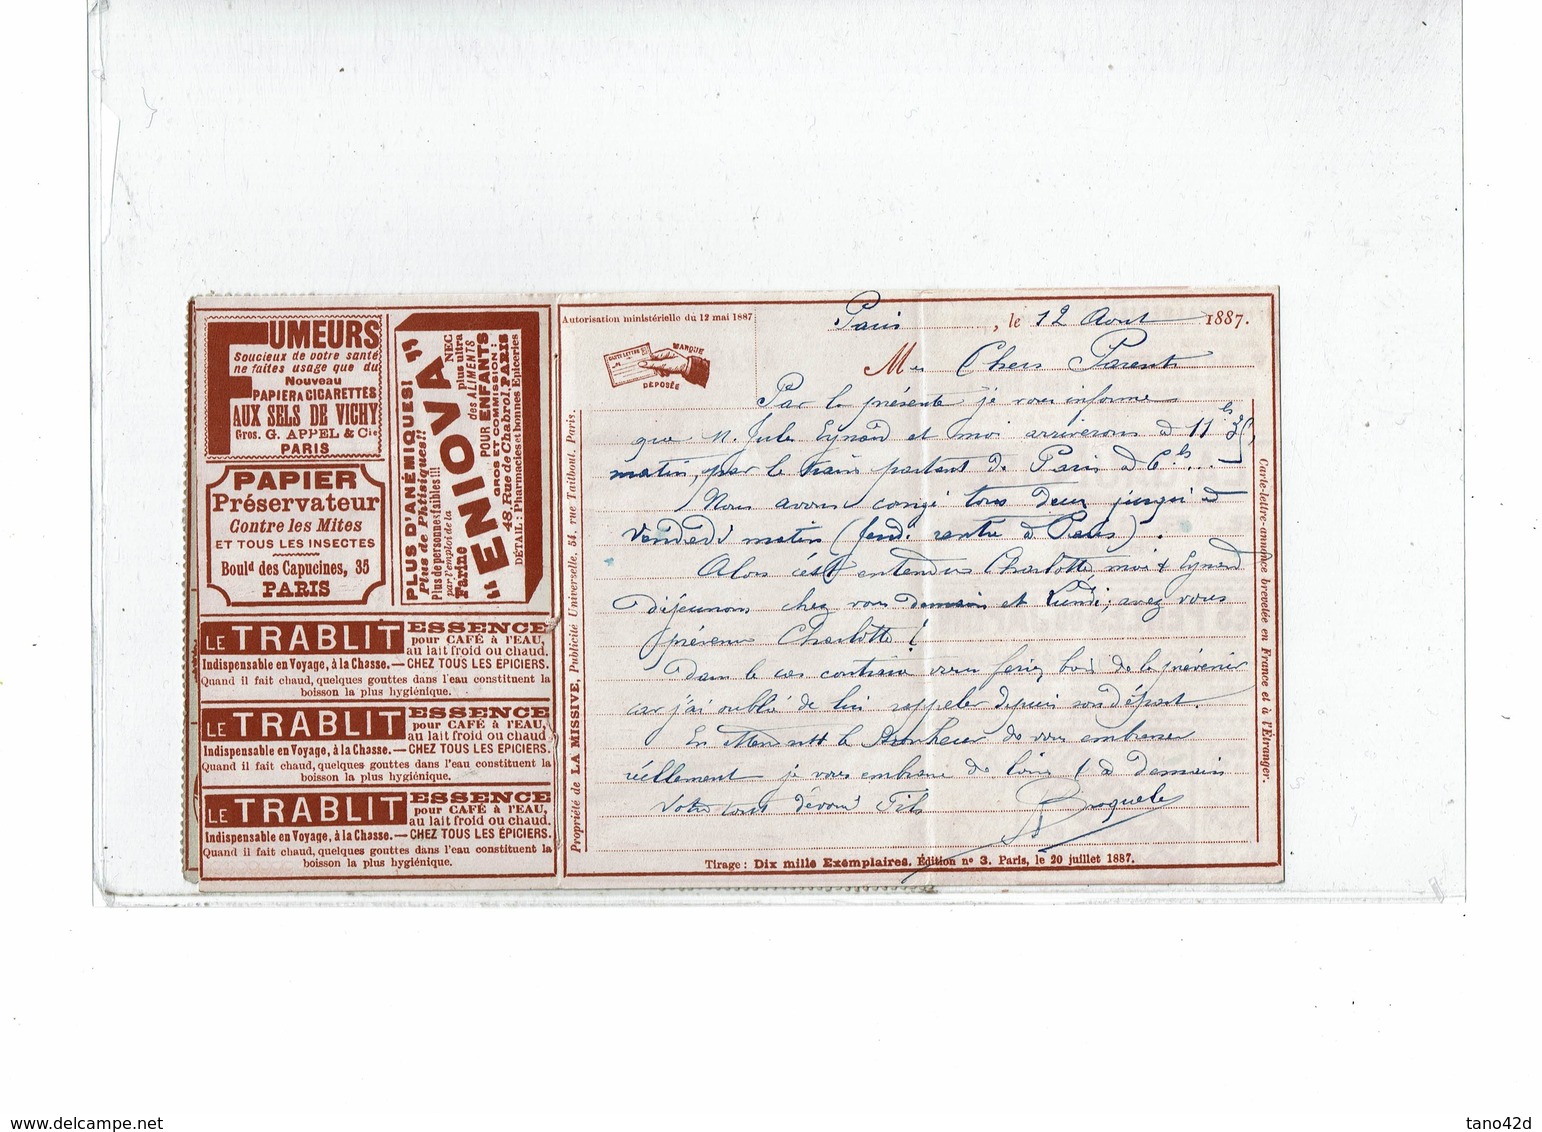 FUMEURS
Soucieux de votre santé
ne faites usage que du
Nouveau
PAPIER A CIGARETTES
AUX SELS DE VICHY
Gros. G. APPEL & Cie
PARIS
PAPIER
Préservateur
Contre les Mites
ET TOUS LES INSECTES
Bould des Capucines, 35
PARIS
PLUS D'ANÉMIQUES!
Plus de Phtisiques!!
Plus de personnes faibles!!!
par l'emploi de la
Farine
"ENIOVA"
NEC
plus ultra
des ALIMENTS
POUR ENFANTS
GROS ET COMMISSION:
48, Rue de Chabrol, PARIS
DÉTAIL: Pharmacies et bonnes Epiceries
LE TRABLIT ESSENCE
pour CAFÉ à l'EAU,
au lait froid ou chaud.
Indispensable en Voyage, à la Chasse. — CHEZ TOUS LES ÉPICIERS.
Quand il fait chaud, quelques gouttes dans l'eau constituent la
boisson la plus hygiénique.
LE TRABLIT ESSENCE
pour CAFÉ à l'EAU,
au lait froid ou chaud.
Indispensable en Voyage, à la Chasse. — CHEZ TOUS LES ÉPICIERS.
Quand il fait chaud, quelques gouttes dans l'eau constituent la
boisson la plus hygiénique.
LE TRABLIT ESSENCE
pour CAFÉ à l'EAU,
au lait froid ou chaud.
Indispensable en Voyage, à la Chasse. — CHEZ TOUS LES ÉPICIERS.
Quand il fait chaud, quelques gouttes dans l'eau constituent la
boisson la plus hygiénique.
Autorisation ministérielle du 12 mai 1887
MARQUE
DÉPOSÉE
CARTE LETTRE
Paris, le 12 Aout 1887.
Mes Chers Parents
Par la présente je vous informe
que M. Jules Eynard et moi arriverons à 11 hs 35,
matin, par le train partant de Paris à 6 hs...
Nous avons congé tous deux jusqu'à
Vendredi matin ( rentré à Paris).
Alors c'est entendu Charlotte, moi & Eynard
déjeunons chez vous demain et Lundi; avez vous
prévenu Charlotte!
Dans le cas contraire vous feriez bien de la prévenir
car j'ai oublié de lui rappeler depuis son départ.
En attendant le bonheur de vous embrasser
réellement je vous embrasse de loin! à demain
Votre tout dévoué Fils
Propriété de LA MISSIVE, Publicité Universelle, 54, rue Taitbout, Paris.
Carte-lettre-annonce brevetée en France et à l'Étranger.
Tirage: Dix mille Exemplaires. Édition n° 3. Paris, le 20 juillet 1887.
www.delcampe.net
tano42d